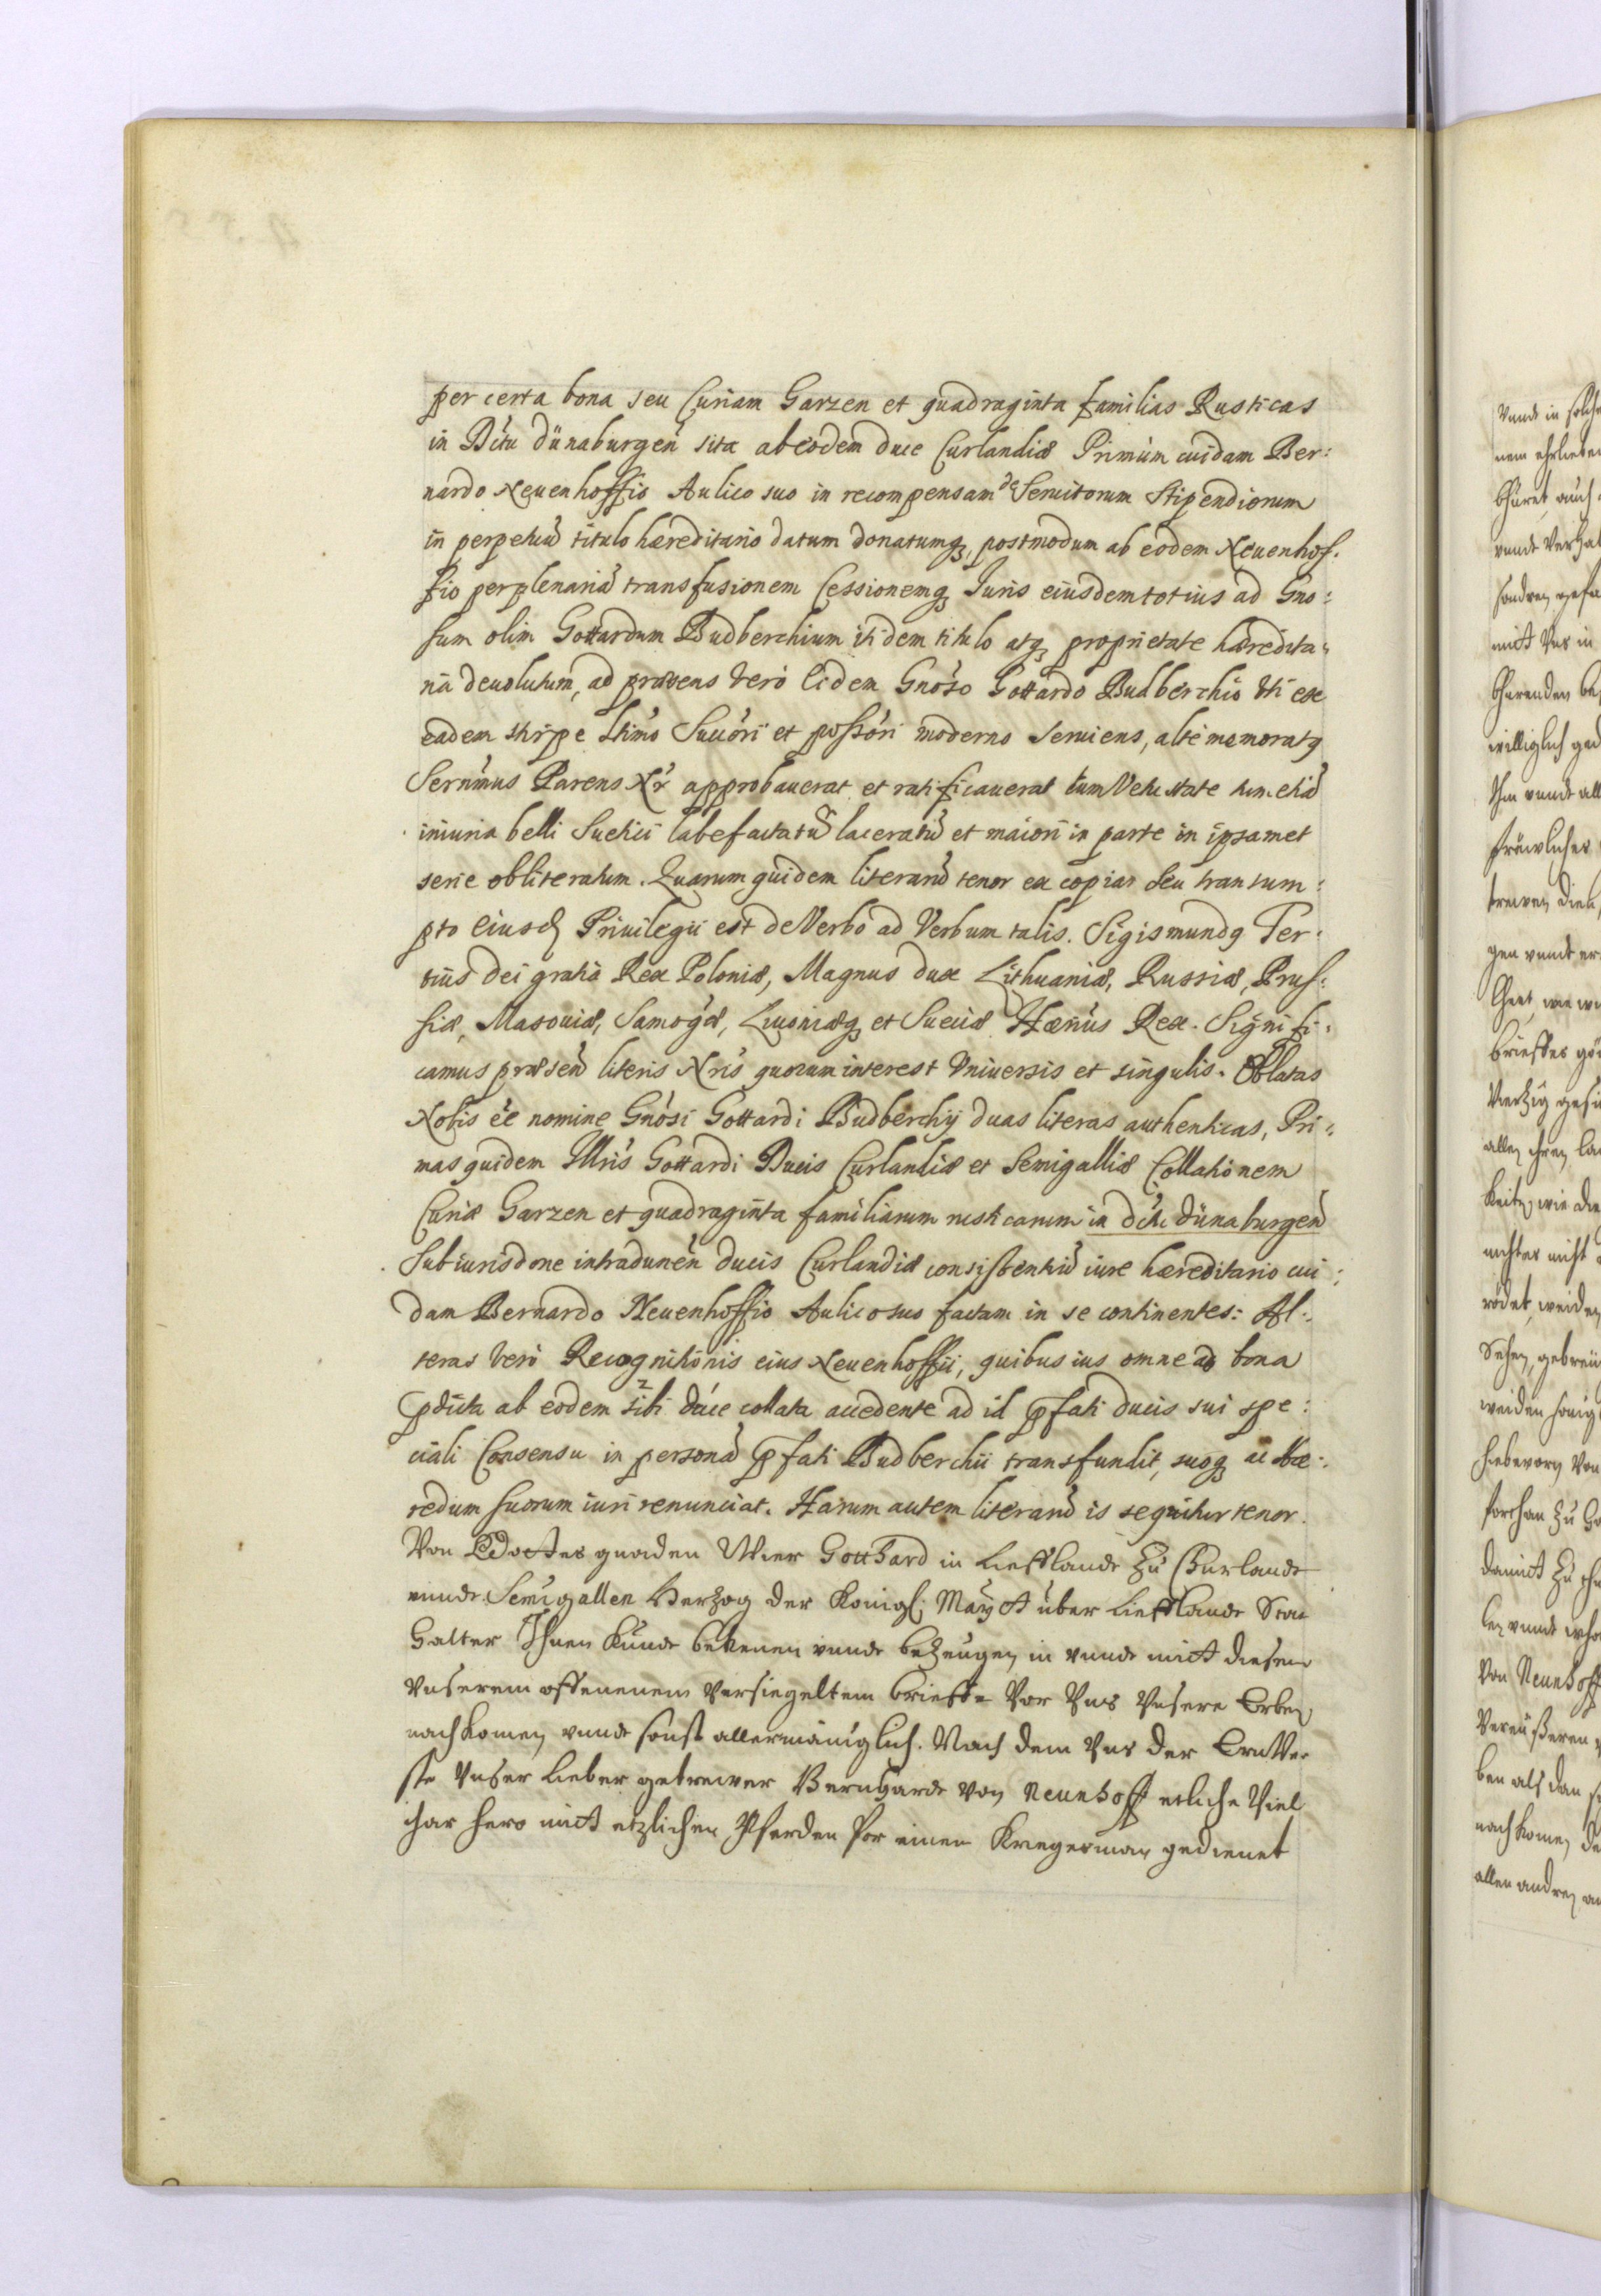 per certa bona seu Curiam Garzen et quadraginta familias Rusticas
in Dctu Dünaburgen̄ sita ab eodem duce Curlandiæ Primùm cuidam Ber:
nardo Neuenhoffio Aulico suo in recompensam de Seruitorum Stipendiorum
in perpetuū titulo hæreditario datum donatumq₃, postmodum ab eodem Neuenhof:
fio per plenariā transfusionem Cessionemq₃ Iuris eiusdem totius ad Gno:
sum olim Gottardum Budberchium itidem titulo atq₃ proprietate hæredita:
riā deuolutum, ad præsens verò Eidem Gnoso Gottardo Budberchio Vti ex
eadem stirpe ltimo Succōri et possōri moderno seruiens, altè memoratq
Sernmus Parens Nr̄ approbauerat et ratificauerat tum Vetustate tum etiā
iniuria belli Suetici labefactatū laceratū et maiori in parte in ipsamet
serie obliteratum. Quarum quidem literarū tenor ex copias seu transum:
pto Eiusd Priuilegii est de Verbo ad Verbum talis. Sigismundq Ter:
tius Dei gratia Rex Poloniæ, Magnus dux Lithuaniæ, Russiæ, Prus:
siæ, Masouiæ, Samogæ, Liuoniæq₃ et Sueciæ Hærius Rex. Signifi:
camus præsen̄ literis Nris quorum interest Vniuersis et singulis. Oblatas
Nobis ēe nomine Gnosi Gottardi Budberchij duas literas authenticas, Pri:
mas quidem Illris Gottardi Ducis Curlandiæ et Semigalliæ Collationem
Curiæ Garzen et quadraginta familiarum rusticarum in dctu Dünaburgen̄
Sub iurisdone intradunen̄ ducis Curlandiæ consistentiū iure hæreditario cui:
dam Bernardo Neuenhoffio Aulico suo factam in se continentes: Al:
teras verò Recognitionis eius Neuenhoffii, quibus ius omne ad bona
pdicta ab eodem sibi duce collata accedente ad id pfati ducis sui spe:
ciali Consensu in personā pfati Budberchii transfundit, suoq₃ ac Hæ:
redum suorum iuri renunciat. Harum autem literarū is sequitur tenor.
Von Gottes gnaden Wier Gotthard in Liefflande zu Churlande
vnnde Semigallen Hertzog der Königl: Mayt über Liefflande Stat
halter Thuen Kunde bekenen vnnde bezeugen in vnnde mit diesem
Vnserem offenenem versiegeltem brieffe Vor Vns Vnsere Erben
nachkomen vnnde sonst allermäniglich. Nach dem Vns der ErnVe
ste Vnser lieber getrewer Bernharde von Neunhoff etliche Viel
ihar hero mit etzlichen Pferden for einen Kriegesman gedienet